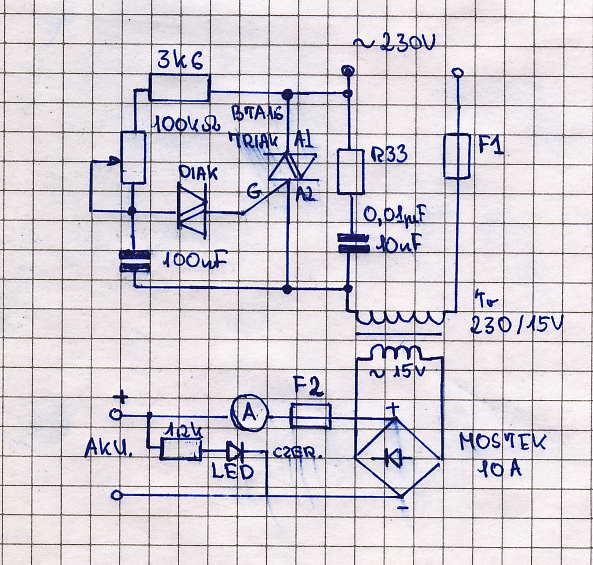 ~ 230V
3k6
100kΩ
BTA16
TRIAK A1
F1
R33
DIAK
G
A2
0,01µF
10nF
100nF
Tr
230/15V
~ 15V
F2
+
A
+
1,2k
AKU.
LED
CZER.
MOSTEK
10A
-